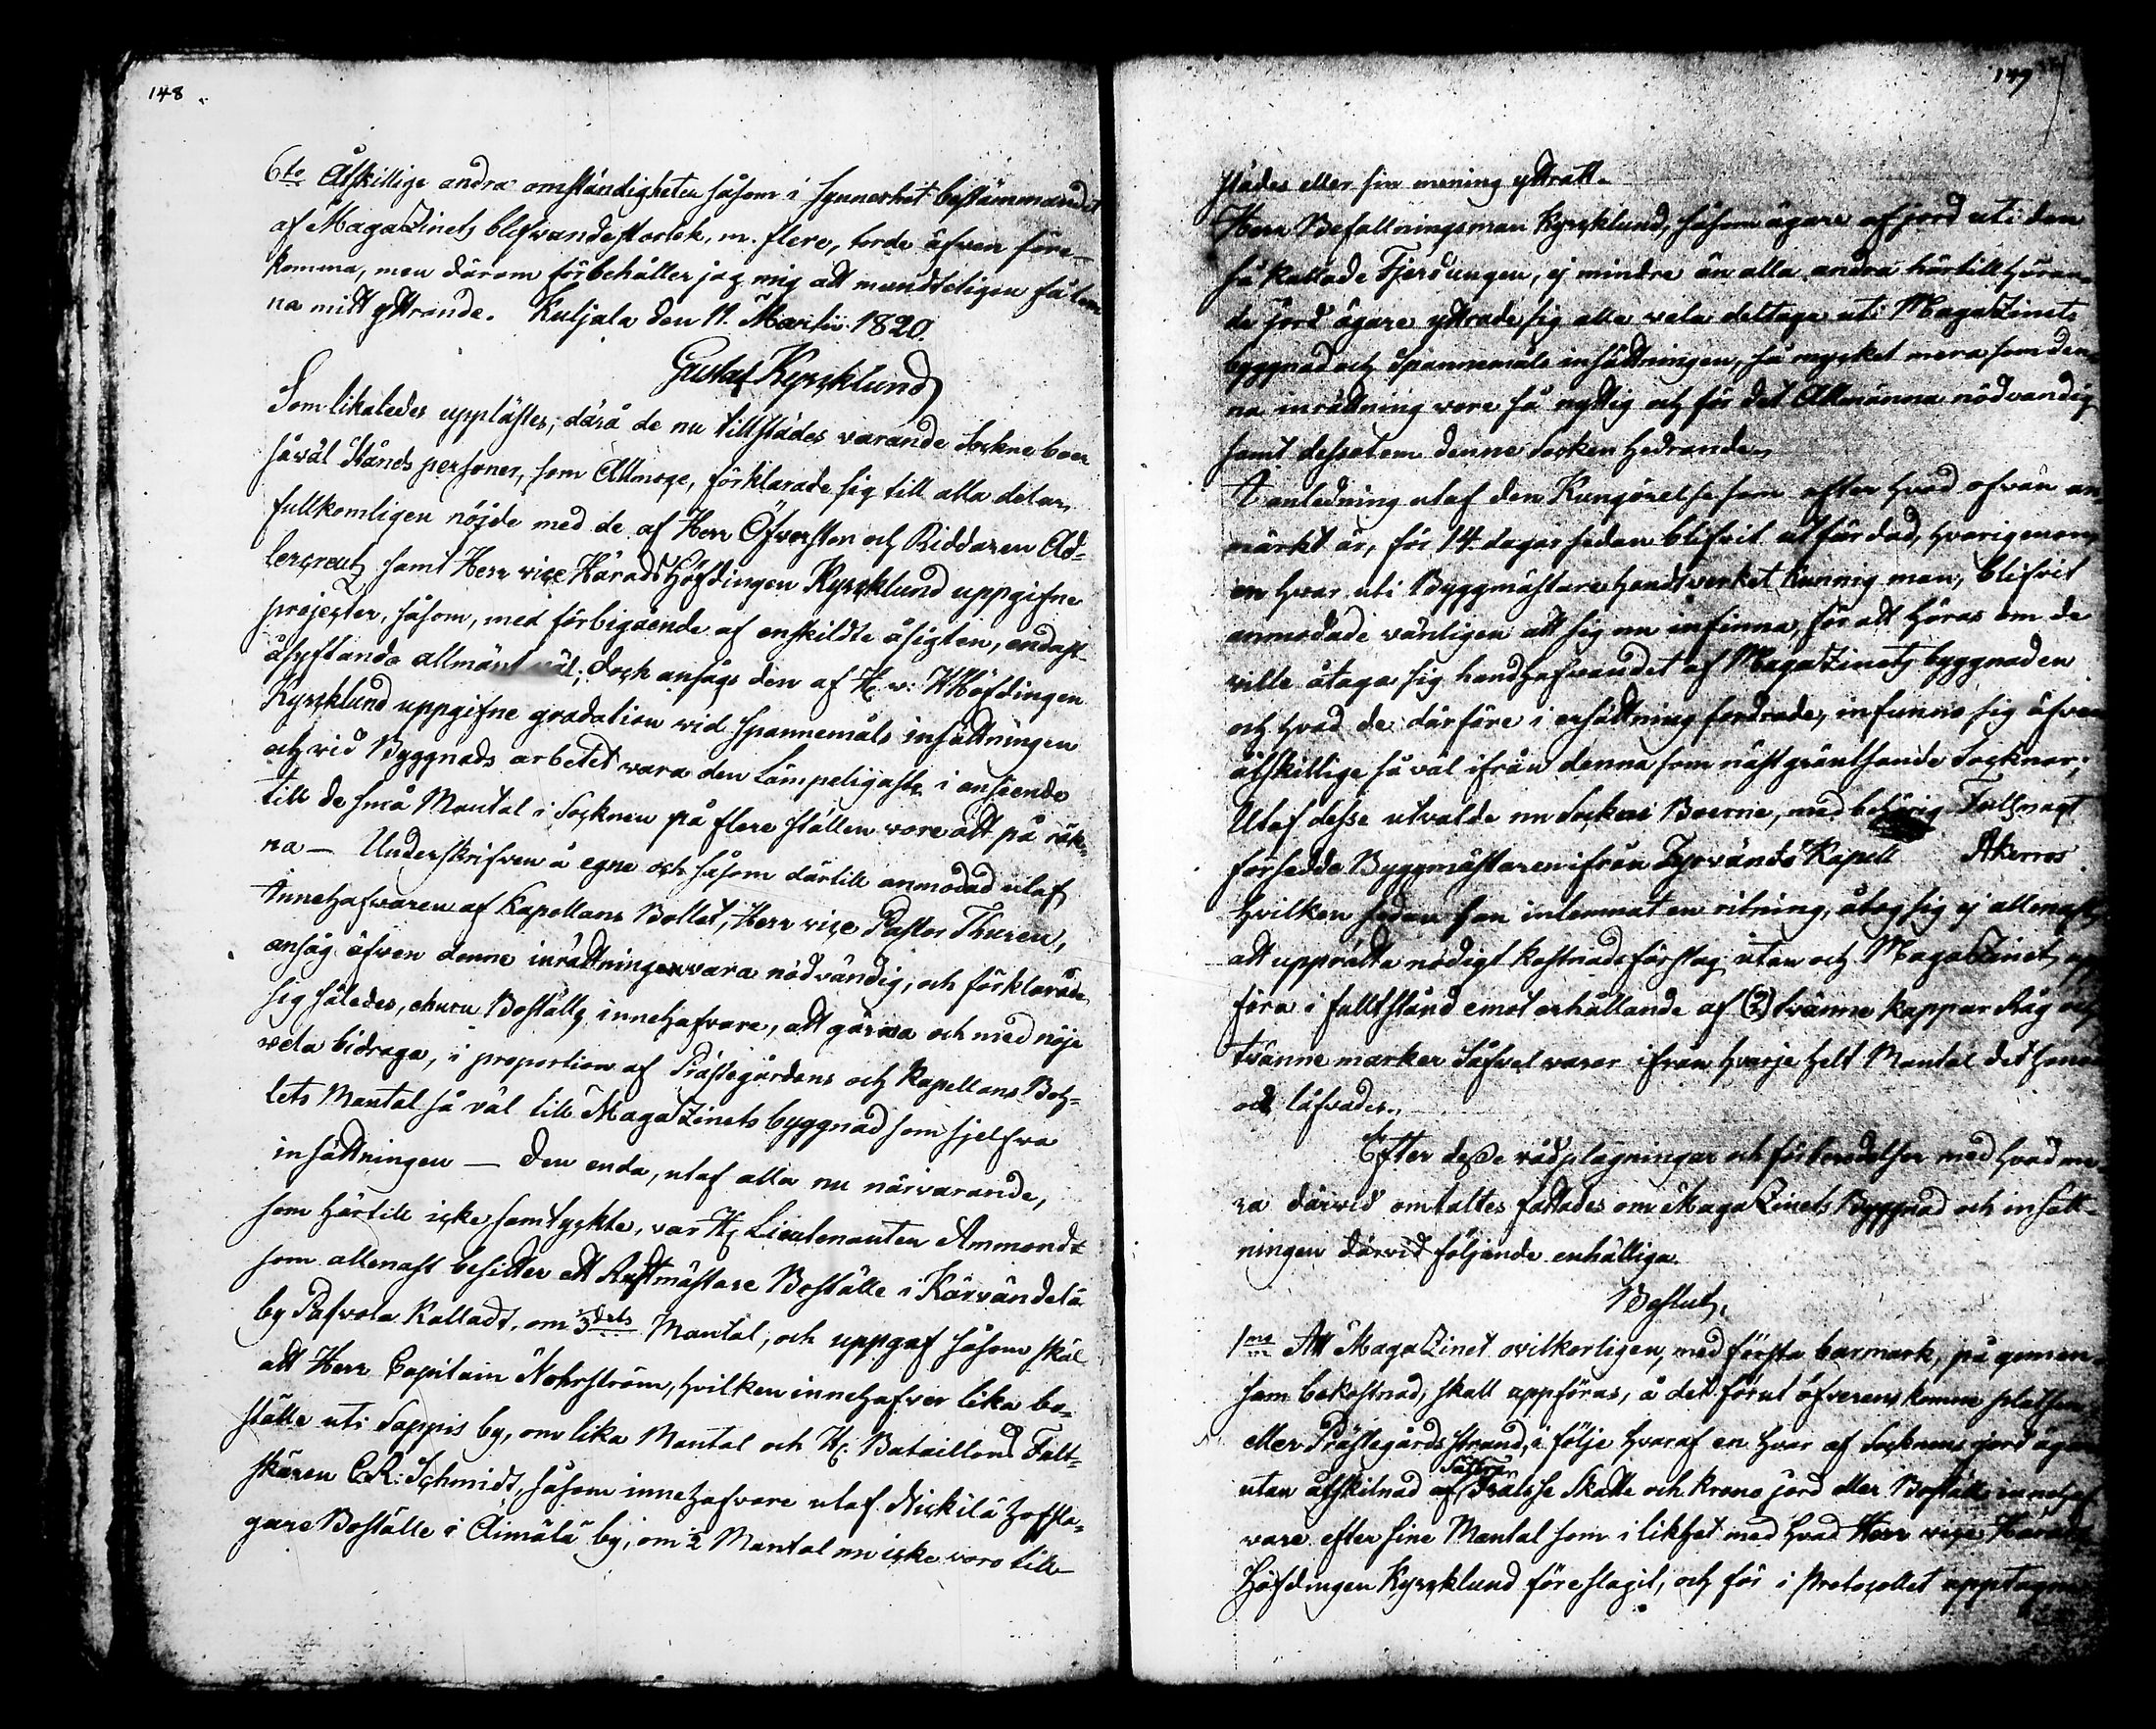 148.
6te Åtskillige andra omständigheter såsom i synnerhet bestämmandet
af Magazinets blifvande storlek, m. flere, torde äfven före-
komma, men därom förbehåller jag mig att mundteligen få lem
na mitt yttrande. Kuljala den 11. Martii 1820.
Gustaf Kyrcklund
Som likaledes upplästes; därå de nu tillstädes varande Sockne boer
såväl Stånds personer, som Allmoge, förklarade sig till alla delar,
fullkomligen nöjde med de af Herr Öfversten och Riddaren Ad-
lercreutz samt Herr vice HäradsHöfdingen Kyrcklund uppgifne
projecter, såsom, med förbigående af enskildte åsigter, endast
åsyftande allmänt väl; Dock ansågs den af H. v. HHöfdingen
Kyrcklund uppgifne gradation vid Spannemåls insättningen
och vid Byggnads arbetet vara den Lämpeligaste i anseende
till de små Mantal i Socknen på flere ställen vore att på räk-
na — Underskrifven å egne och såsom därtill anmodad utaf
Innehafvaren af Kapellans Bollet, Herr vice Pastor Thuren,
ansåg äfven denne inrättningen vara nödvändig, och förklarade
sig således, ehuru Boställs innehafvare, att gärna och med nöje
vela bidraga, i proportion af Prästegårdens och Kapellans Bol-
lets Mantal så väl till Magazinets byggnad som sjelfva
insättningen — Den enda, utaf alla nu närvarande,
som härtill icke samtyckte, var H. Lieutenanten Ammondt
som allenast besitter ett Rustmästare Boställe i Kärvändelä
by Pafvola Kalladt, om 1/3dels Mantal, och uppgaf såsom skäl
att Herr Capitain Nohrström, hvilken innehafver lika bo-
ställe uti Sappis by, om lika Mantal och H. Bataillons Fält-
skären C.R. Schmidt, såsom innehafvare utaf Nickilä Hofsla-
gare Boställe i Äimälä by, om 1/2 Mantal nu icke voro till-
149
städes eller sin mening yttrat.
Herr Befallningsman Kyrcklund, såsom ägare af jord uti den
så kallade Fjerdungen, ej mindre än alla andra härtill höran-
de jord ägare yttrade sig alla vela deltaga uti Magazinets
byggnad och Spannemåls insättningen, så mycket mera som den-
na inrättning vore så nyttig och för det Allmänna nödvandig
samt dessutom denne Socken hedrande.
I anledning utaf den Kungörelse som efter hvad ofvan an-
märkt är, för 14 dagar sedan blifvit utfärdad, hvarigenom
en hvar uti Byggmästare Handtverket kunnig man, blifvit
anmodade vänligen att sig nu infinna, för att höras om de
ville åtaga sig handhafvandet af Magazinets byggnaden
och hvad de därföre i ersättning fordrade, infunno sig äfven
åtskillige så väl ifrån denna som näst gräntsande Socknar;
Utaf desse utvalde nu Sockne Boerne, med behörig Fullmagt
försedde Byggmästaren ifrån Tyrvändö Kapell Akerros
hvilken sedan han inlemnat en ritning, åtog sig ej allenast
att upprätta nödigt kostnads förslag utan och Magazinet upp
föra i fullt stånd emot erhållande af (2) tvänne kappar Råg och
tvänne marker Säfvel varor ifrån hvarje helt Mantal det honom
ock låfvades.
Efter desse rådplägningar och förberedelser med hvad me-
ra därvid omtaltes fattades om Magazinets Byggnad och insätt-
ningen därvid följande enhälliga
Beslut.
1mo Att Magazinet ovilkorligen, med första barmark, på gemen-
sam bekostnad, skall uppföras, å det förut öfverens komne platsen
eller Prästegårds Strand, i följe hvaraf en hvar af Socknens jord ägare
utan åtskilnad af Säteri Frälse Skatte och Krono jord eller Boställs innehaf
vare efter sine Mantal som i likhet med hvad Herr vice Härads
Höfdingen Kyrcklund föreslagit, och för i Protocollet upptagne